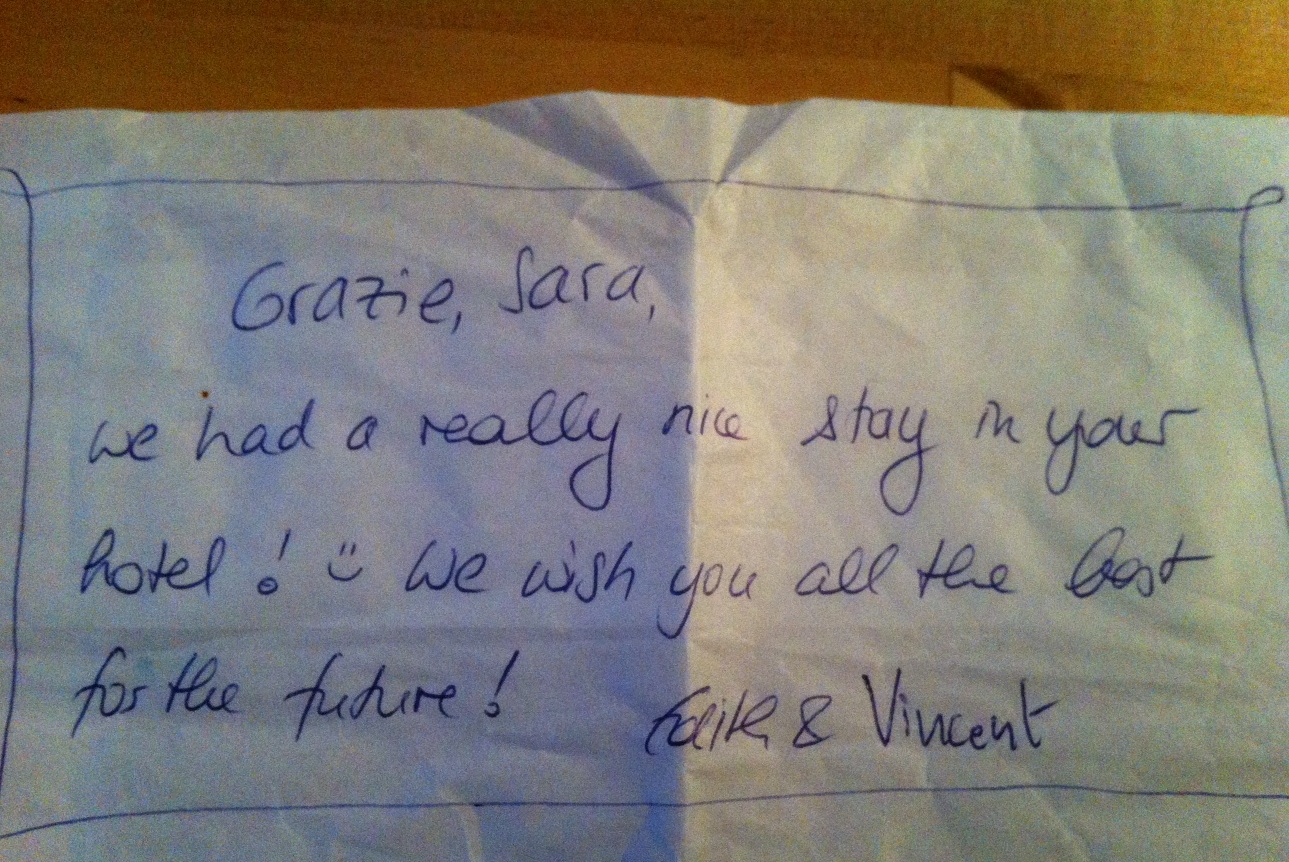 Grazie, Sara,
we had a really nice stay in your
hotel! :) We wish you all the best
for the future! & Vincent